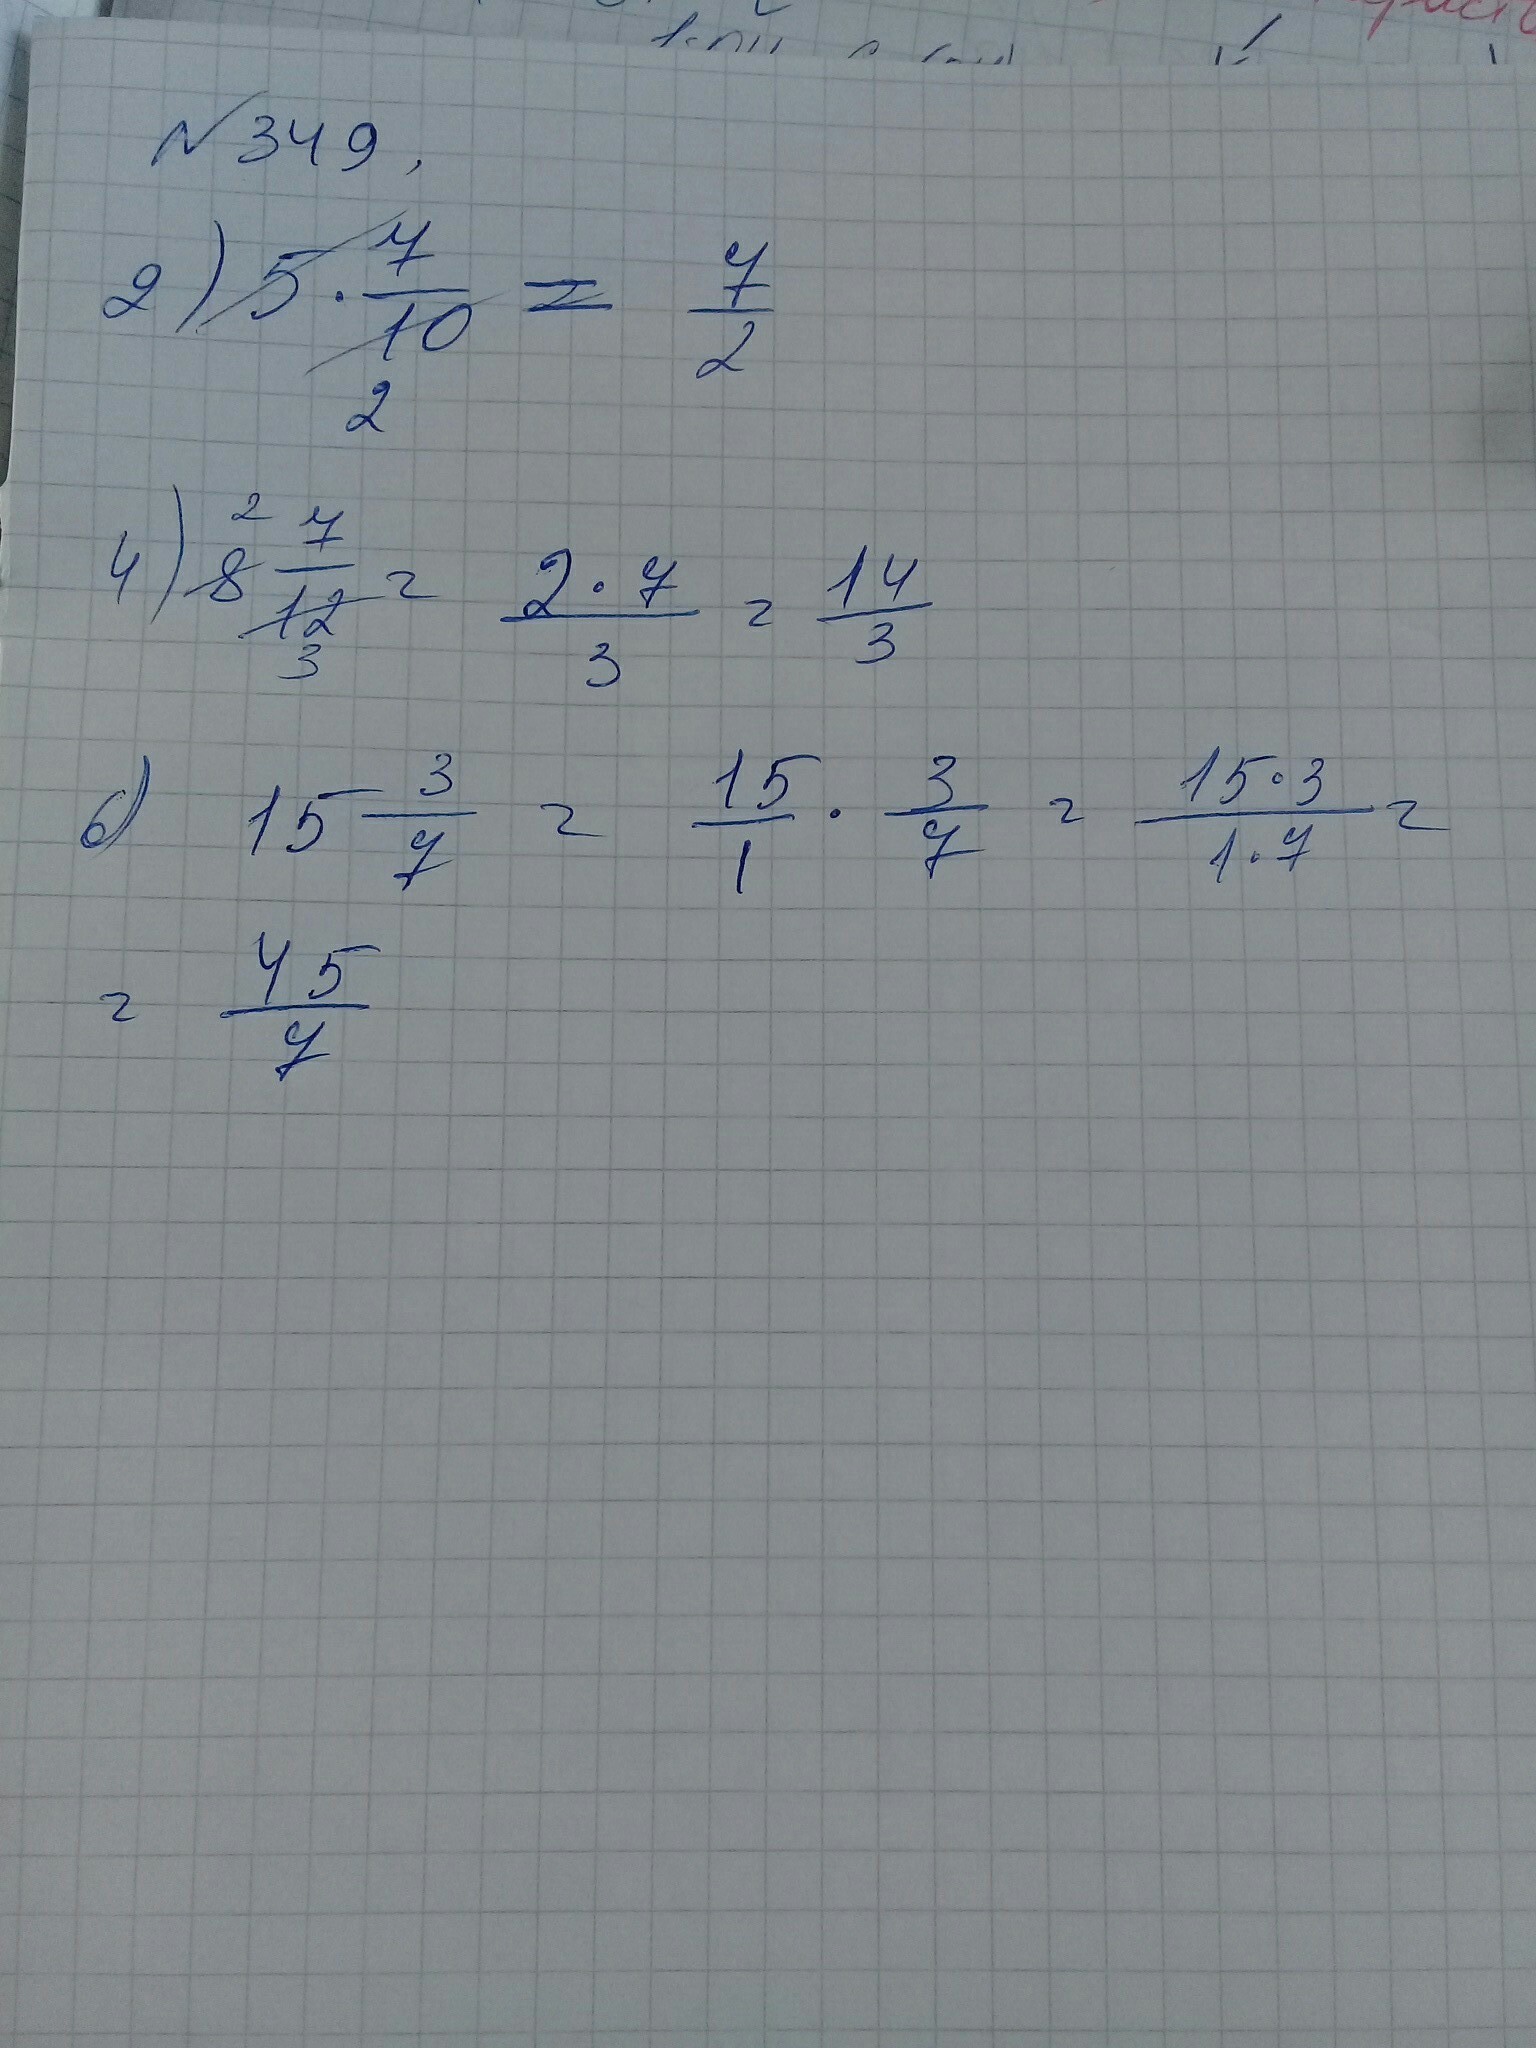 №349.
2) 5 · 7/10 = 7/2
2
4) 8 7/12 = 2·7/3 = 14/3
2
3
6) 15 3/7 = 15/1 · 3/7 = 15·3/1·7 =
= 45/7